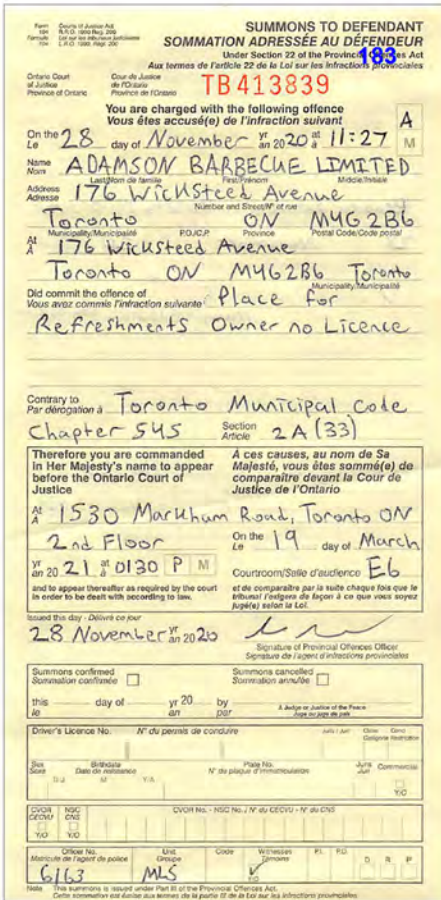 Form Courts of Justice Act SUMMONS TO DEFENDANT
104 R.R.O. 1990 Reg. 200 SOMMATION ADRESSÉE AU DÉFENDEUR
Formule Loi sur les tribunaux judiciaires Under Section 22 of the Provincial Offences Act
104 L.R.O. 1990, Rég. 200 Aux termes de l'article 22 de la Loi sur les infractions provinciales
183
Ontario Court Cour de Justice
of Justice de l'Ontario
Province of Ontario Province de l'Ontario
TB413839
You are charged with the following offence
Vous êtes accusé(e) de l'infraction suivant
On the 28 day of November yr 2020 at 11:27 A M
Le an à
Name ADAMSON BARBECUE LIMITED
Nom Last/Nom de famille First/Prénom Middle/Initiale
Address 176 Wicksteed Avenue
Adresse Number and Street/N° et rue
Toronto ON M4G 2B6
Municipality/Municipalité P.O./C.P. Province Postal Code/Code postal
At 176 Wicksteed Avenue
À
Toronto ON M4G2B6 Toronto
Municipality/Municipalité
Did commit the offence of Place for
Vous avez commis l'infraction suivante
Refreshments Owner no Licence
Contrary to Toronto Municipal Code
Par dérogation à
Chapter 545 Section 2A(33)
Article
Therefore you are commanded
in Her Majesty's name to appear
before the Ontario Court of
Justice
À ces causes, au nom de Sa
Majesté, vous êtes sommé(e) de
comparaître devant la Cour de
Justice de l'Ontario
At 1530 Markham Road, Toronto ON
À
2nd Floor On the 19 day of March
Le
yr 2021 at 0130 P M Courtroom/Salle d'audience E6
an à
and to appear thereafter as required by the court
in order to be dealt with according to law.
et de comparaître par la suite chaque fois que le
tribunal l'exigera de façon à ce que vous soyez
jugé(e) selon la Loi.
Issued this day - Délivré ce jour
28 November yr 2020
an
Signature of Provincial Offences Officer
Signature de l'agent d'infractions provinciales
Summons confirmed Summons cancelled
Sommation confirmée Sommation annulée
this day of yr 20 by
le an par
A Judge or Justice of the Peace
Juge ou juge de paix
Driver's Licence No. N° du permis de conduire
Sex Birthdate Plate No. Juris Commercial
Sexe Date de naissance N° de plaque d'immatriculation Juri
D/J M Y/A Y/O
CVOR NSC CVOR No. - NSC No. / N° du CECVU - N° du CNS
CECVU CNS
Y/O Y/O
Officer No. Unit Code Witnesses P.I. P.D. D R P
Matricule de l'agent de police Groupe Témoins
Y/O
6163 MLS
Note This summons is issued under Part III of the Provincial Offences Act.
Cette sommation est émise aux termes de la partie III de la Loi sur les infractions provinciales.